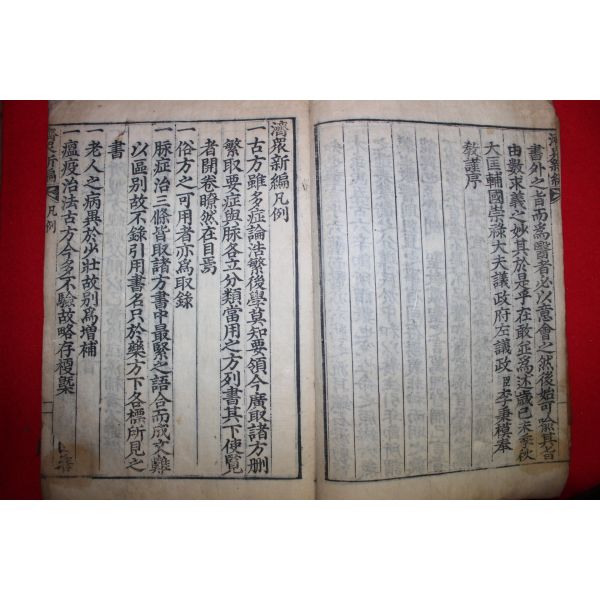 書外之旨而爲醫者必以意會之然後始可除其旨
由數求義之妙其於是乎在敢並爲述歲己未季秋
大匡輔國崇祿大夫議政府左議政臣李秉模奉
敎謹序
濟衆新編凡例
一古方雖多症論浩繁後學莫知要領今廣取諸方刪
繁取要症與脈各立分類當用之方列書其下使覽
者開卷瞭然在目焉
一俗方之可用者亦爲取錄
一脈症治三條皆取諸方書中最緊之語合而成文難
以區別故不錄引用書名只於藥方下各標所見之
書
一老人之病異於少壯故別爲增補
一瘟疫治法古方今多不驗故略存梗槩
濟衆新編 凡例